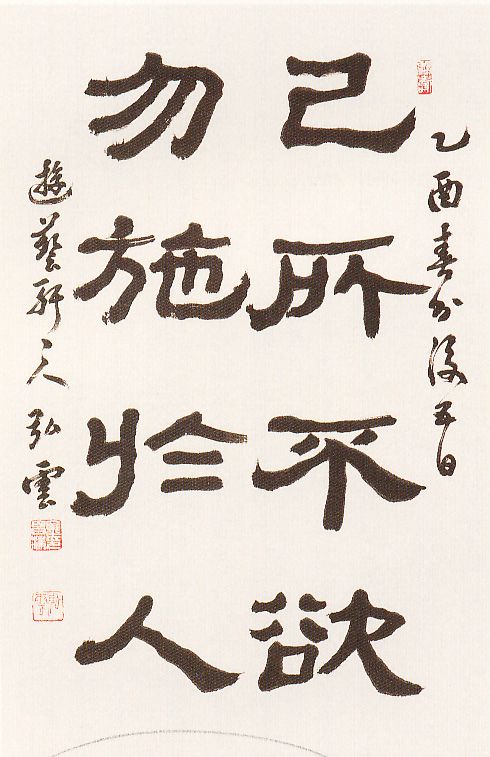 乙酉春分後五日
己所不欲
勿施於人
遊藝軒主人弘雲